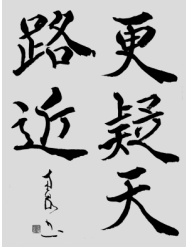 更疑天
路近